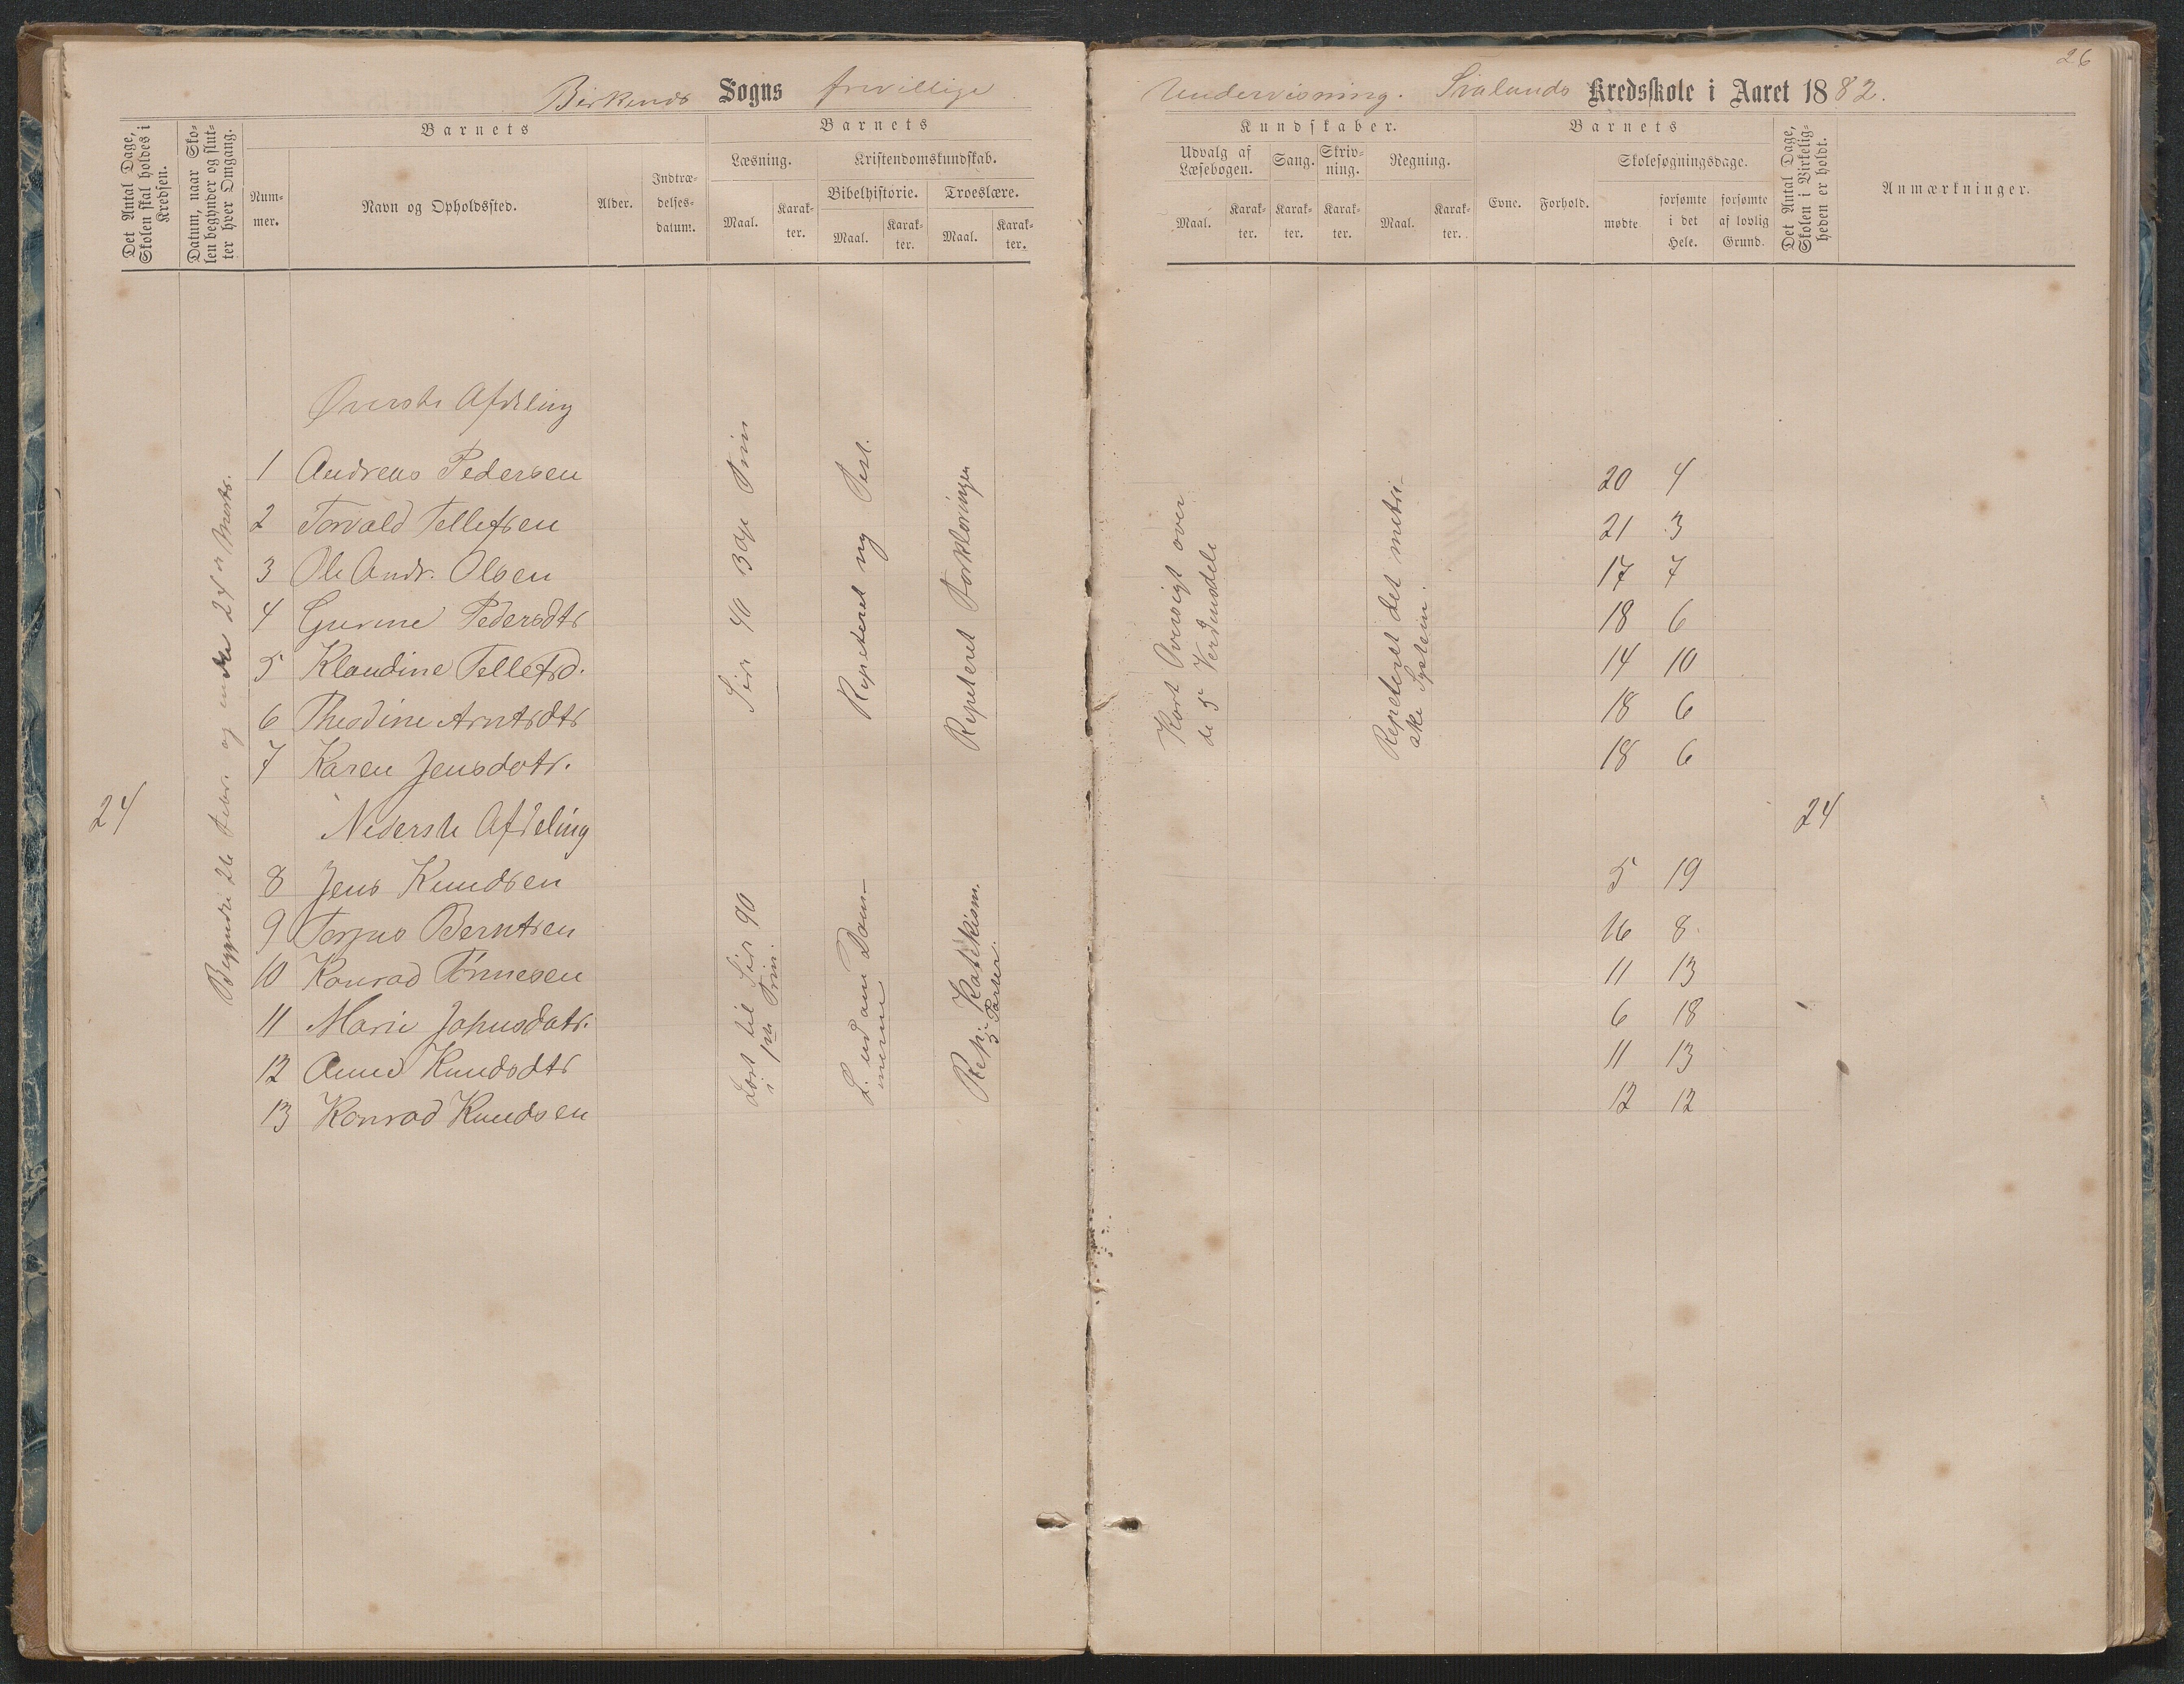 26
Birkenes Sogns frivillige Undervisning. Svalands Kredsskole i Aaret 1882.
Det Antal Dage, Skolen skal holdes i Kredsen.
Datum, naar Skolen begynder og slutter hver Omgang.
Barnets
Nummer.
Navn og Opholdssted.
Alder.
Indtrædelsesdatum.
Barnets
Læsning.
Maal.
Karakter.
Kristendomskundskab.
Bibelhistorie.
Maal.
Karakter.
Troeslære.
Maal.
Karakter.
Kundskaber.
Udvalg af Læsebogen.
Maal.
Karakter.
Sang.
Karakter.
Skrivning.
Karakter.
Regning.
Maal.
Karakter.
Barnets
Evne.
Forhold.
Skolesøgningsdage.
mødte
forsømte i det Hele.
forsømte af lovlig Grund.
Det Antal Dage, Skolen i Virkeligheden er holdt.
Anmærkninger.
Øverste Afdeling
1 Andreas Pedersen 20 4
2 Torvald Tellefsen 21 3
3 Ole Andr. Olsen 17 7
4 Gurine Pedersdtr 18 6
5 Klaudine Tellefsd. 14 10
6 Theodine Arntsdtr 18 6
7 Karen Jensdotr. 18 6
Repeteret
Repeteret Forklaringen
Kort Oversigt over
de 5 Verdensdele
Repeteret det metri-
ske System.
24
24
Nederste Afdeling
8 Jens Knudsen 5 19
9 Terjus Berntsen 16 8
10 Konrad Tønnesen 11 13
11 Marie Johnsdatr. 6 18
12 Anne Knudsdtr 11 13
13 Konrad Knudsen 12 12
Læst til Side 90
i 1ste Trin.
L. ud om Dom-
merne
Rep. Katekism.
3 Parter.